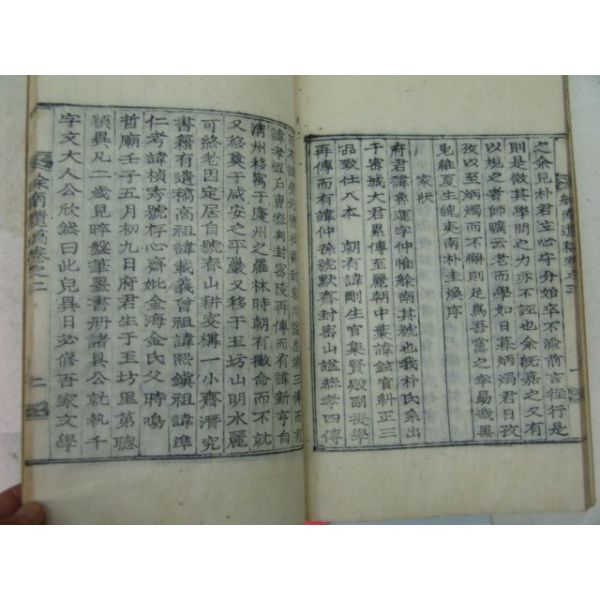 之余見朴君立心字分始卒不險前言往行是
則是倣其學問之力亦不誣也余旣嘉之又有
以規之者師曠云老而學如日暮炳燭君日孜
孜以至炳燭而不懈則是爲吾黨之幸焉歲黑
兔維夏生綾東南朴圭煥序
家狀
府君諱魯運字仲惟絲南其號也我朴氏系出
于密城大君累傳至麗朝中葉諱鉉官糾正三
品致仕八本朝有諱剛生官集賢殿副提學
再傳而有諱仲孫號默齋封密山諡恭孝四傳
諱老恆戶曹參判封密陵再傳而有諱新亨自
淸州移寓于慶州之羅林時朝有徵命而不就
又移奠于咸安之平嚴又移于玉坊山明水麗
可終老因定居自號春山耕叟構一小齋潛究
書籍有遺稿高祖諱載義曾祖諱熙鎭祖諱準
仁考諱楨秀號存心齋妣金海金氏父時鳴
哲廟壬子五月初九日府君生于玉坊里第聰
穎異凡二歲見晬盤筆墨書册諸具公就執千
字文大人公欣然曰此兒異日必修吾家文學
南遺稿卷之二